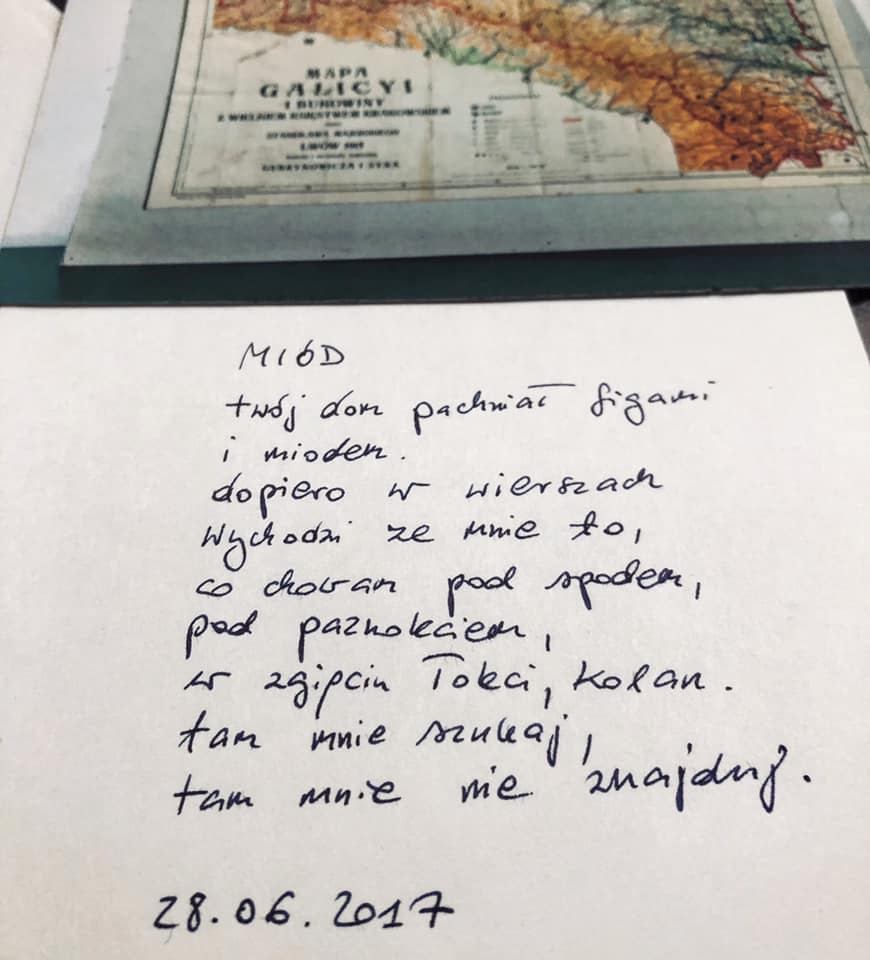 MAPA
GALICYI
I BUKOWINY
Z WIELKIEM KSIĘSTWEM KRAKOWSKIEM
LWÓW
MIÓD
twój dom pachniał figami
i miodem.
dopiero w wierszach
wychodzi ze mnie to,
co chowam pod spodem,
pod paznokciem,
w zgięciu łokci, kolan.
tam mnie szukaj,
tam mnie nie znajduj.
28.06.2017